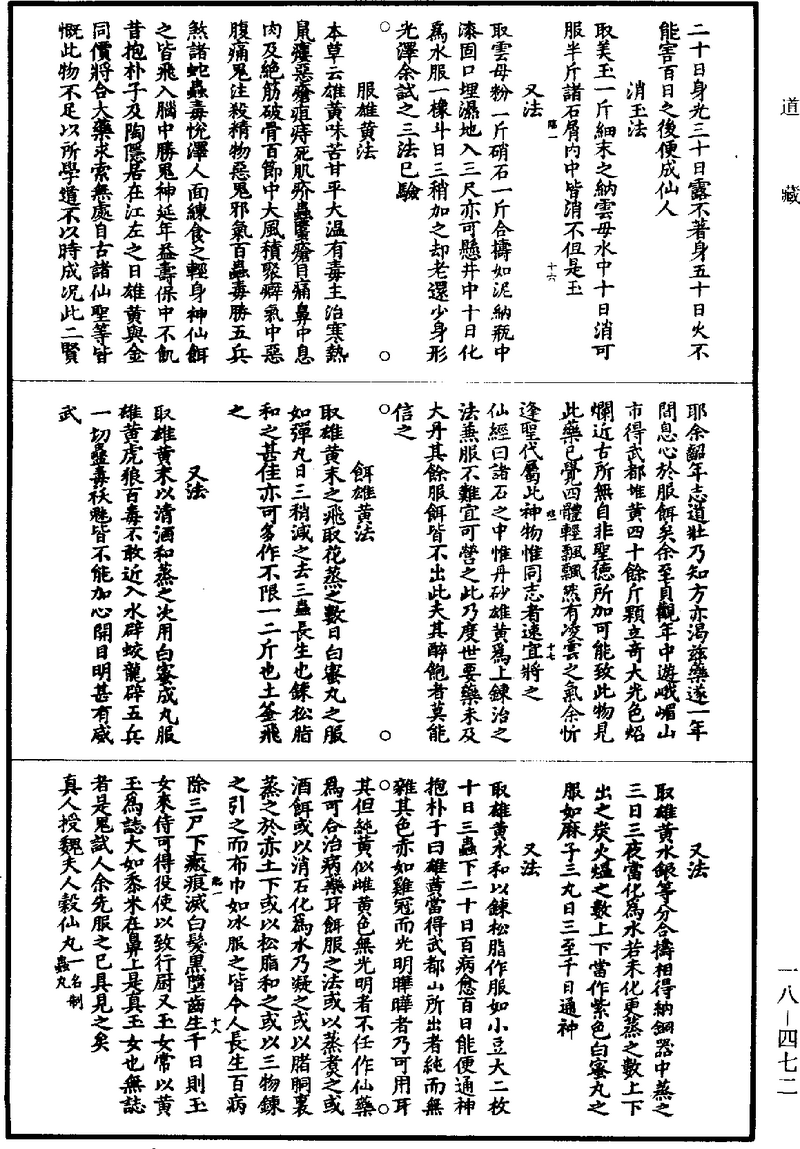 道藏
二十日身光三十日露不著身五十日火不
能害百日之後便成仙人
消玉法
取美玉一斤細末之納雲母水中十日消可
服半斤諸石屑內中皆消不但是玉
十六
又法
取雲母粉一斤硝石一斤合擣如泥納瓶中
漆固口埋濕地入三尺亦可懸井中十日化
為水服一橡斗日三稍加之却老還少身形
光澤余試之三法已驗
服雄黃法
本草云雄黃味苦甘平大温有毒主治寒熱
鼠瘻惡瘡疽痔死肌疥蟲䘌瘡目痛鼻中息
肉及絕筋破骨百節中大風積聚癖氣中惡
腹痛鬼注殺精物惡鬼邪氣百蟲毒勝五兵
煞諸蛇蟲毒悅澤人面練食之輕身神仙餌
之皆飛入腦中勝鬼神延年益壽保中不飢
昔抱朴子及陶隱居在江左之日雄黃與金
同價將合大藥求索無處自古諸仙聖等皆
慨此物不足以所學道不以時成况此二賢
耶余齠年志道壯乃知方亦渴兹藥遂一年
間息心於服餌矣余至貞觀年中遊峨嵋山
市得武都堆黃四十餘斤顆立奇大光色焰
爛近古所無自非聖德所加可能致此物見
此藥已覺四體輕飄飄然有凌雲之氣余忻
十七
逢聖代屬此神物惟同志者速宜將之
仙經曰諸石之中惟丹砂雄黃為上鍊治之
法兼服不難宜可營之此乃度世要藥未及
大丹其餘服餌皆不出此夫其醉飽者莫能
信之
餌雄黃法
取雄黃末之飛取花蒸之數日白蜜丸之服
如彈丸日三稍減之去三蟲長生也鍊松脂
和之甚佳亦可多作不限一二斤也土釜飛
之
又法
取雄黃末以清酒和蒸之次用白蜜成丸服
雄黃虎狼百毒不敢近入水辟蛟龍辟五兵
一切蠱毒袄魅皆不能加心開目明甚有威
武
又法
取雄黃水銀等分合擣相得納銅器中蒸之
三日三夜當化為水若未化更蒸之數上下
出之炭火煴之數上下當作紫色白蜜丸之
服如麻子三丸日三至千日通神
又法
取雄黃水和以鍊松脂作服如小豆大二枚
十日三蟲下二十日百病愈百日能便通神
抱朴子曰雄黃當得武都山所出者純而無
雜其色亦如雞冠而光明曄曄者乃可用耳
其但純黃似雌黃色無光明者不任作仙藥
為可合治病藥耳餌服之法或以蒸煮之或
酒餌或以消石化為水乃凝之或以腊胴裏
蒸之於赤土下或以松脂和之或以三物鍊
之引之而布巾如冰服之皆令人長生百病
除三尸下瘢痕滅白髮黑墮齒生千日則玉
十八
女來侍可得役使以致行厨又玉女常以黃
玉為誌大如黍米在鼻上是真玉女也無誌
者是鬼試人余先服之已具見之矣
真人授魏夫人穀仙丸一名制蟲丸
一八—四七二